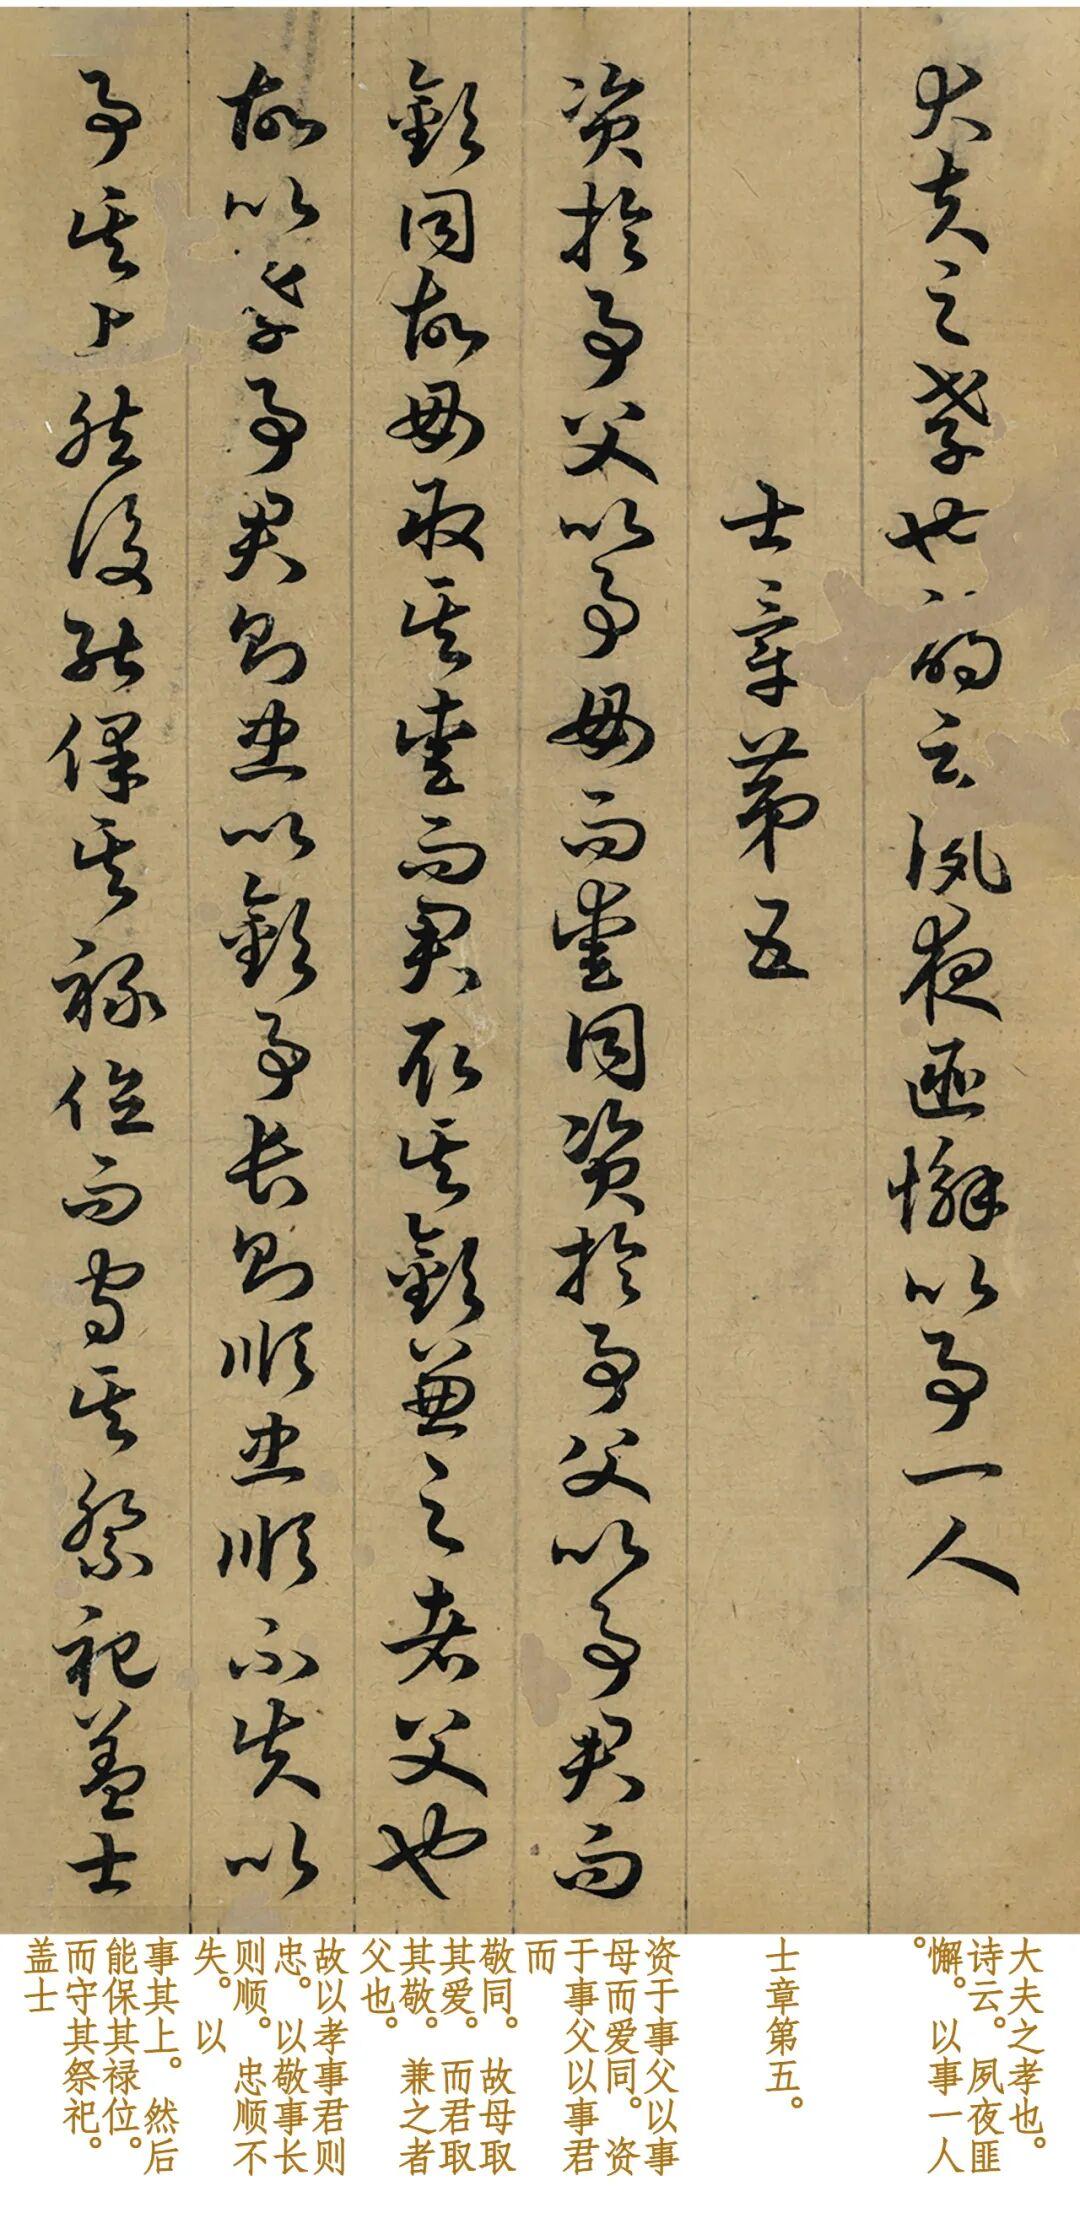 大夫之孝也诗云夙夜匪懈以事一人
士章第五
资於事父以事母而爱同资於事父以事君而
敬同故母取其爱而君取其敬兼之者父也
故以孝事君则忠以敬事长则顺忠顺不失以
事其上然后能保其禄位而守其祭祀盖士
大夫之孝也。
诗云。夙夜匪
懈。以事一人
。
士章第五。
资于事父以事
母而爱同。资
于事父以事君
而
敬同。故母取
其爱。而君取
其敬。兼之者
父也。
故以孝事君则
忠。以敬事长
则顺。忠顺不
失。以
事其上。然后
能保其禄位。
而守其祭祀。
盖士